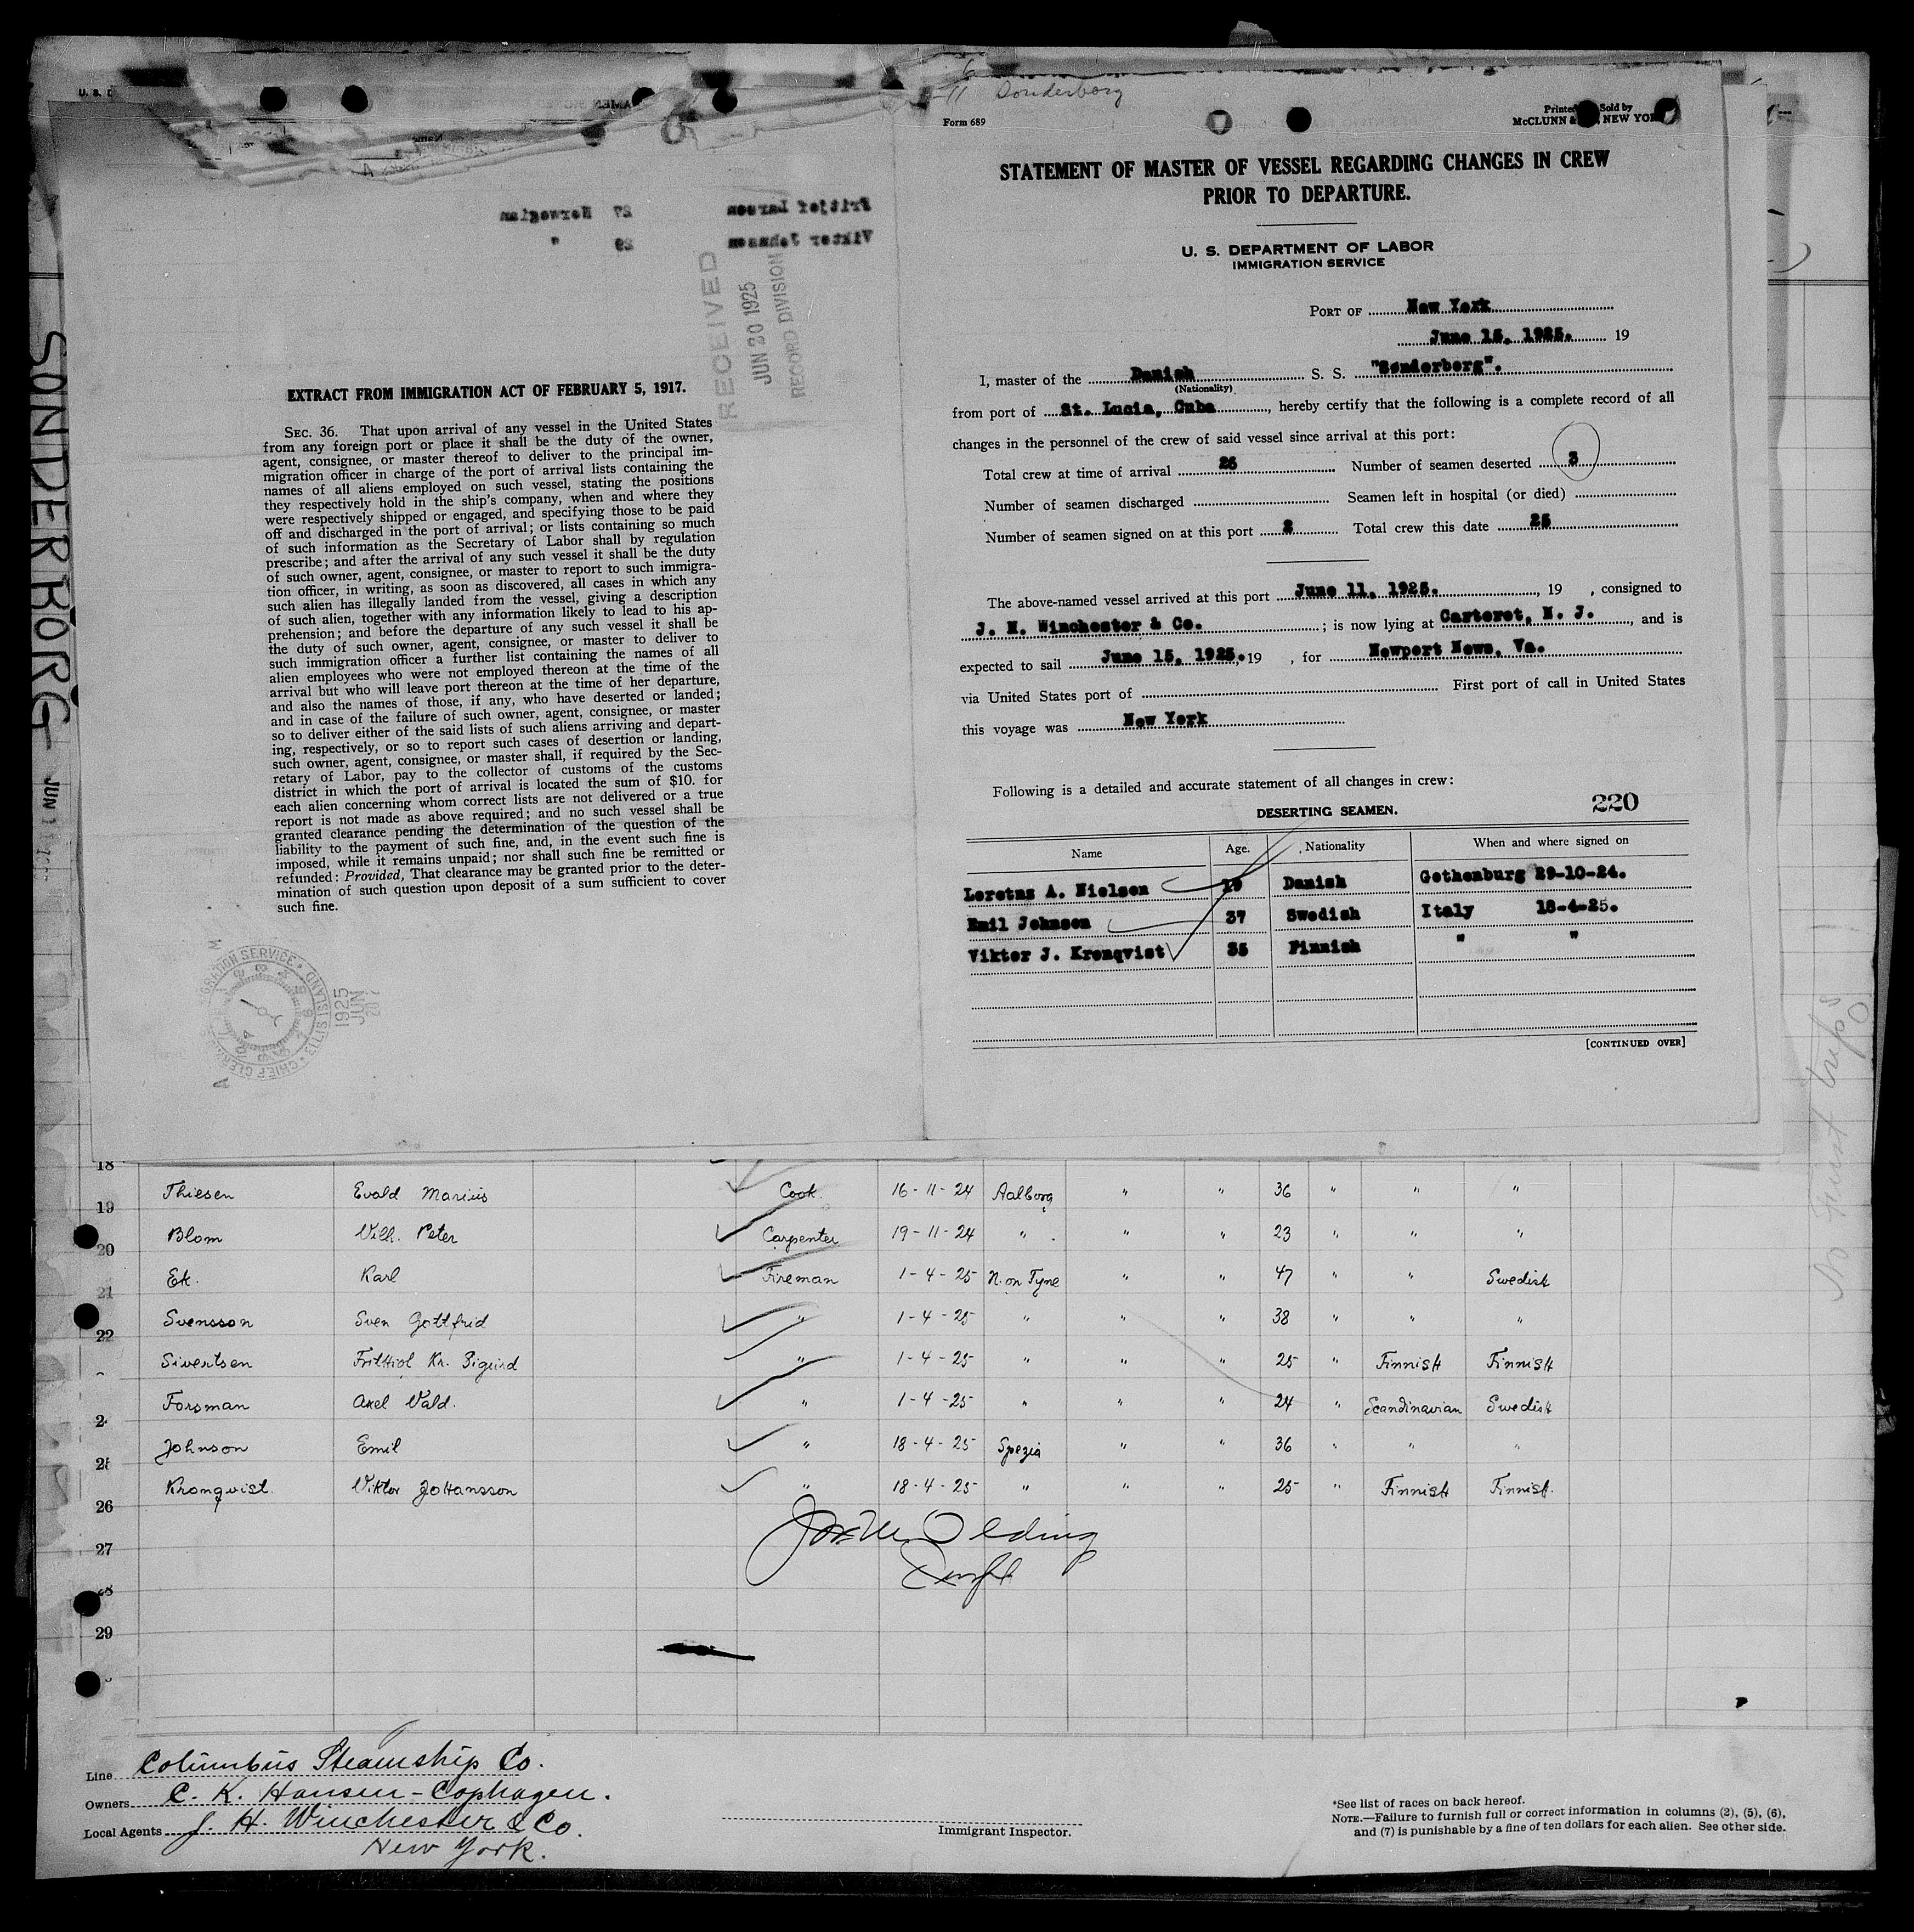 SONDERBORG
Sonderborg
Fritjof Larsen 27 Norwegian
Viktor Johnsen 29 "
RECEIVED
JUN 20 1925
RECORD DIVISION
EXTRACT FROM IMMIGRATION ACT OF FEBRUARY 5, 1917.
SEC. 36. That upon arrival of any vessel in the United States
from any foreign port or place it shall be the duty of the owner,
agent, consignee, or master thereof to deliver to the principal im-
migration officer in charge of the port of arrival lists containing the
names of all aliens employed on such vessel, stating the positions
they respectively hold in the ship's company, when and where they
were respectively shipped or engaged, and specifying those to be paid
off and discharged in the port of arrival; or lists containing so much
of such information as the Secretary of Labor shall by regulation
prescribe; and after the arrival of any such vessel it shall be the duty
of such owner, agent, consignee, or master to report to such immigra-
tion officer, in writing, as soon as discovered, all cases in which any
such alien has illegally landed from the vessel, giving a description
of such alien, together with any information likely to lead to his ap-
prehension; and before the departure of any such vessel it shall be
the duty of such owner, agent, consignee, or master to deliver to
such immigration officer a further list containing the names of all
alien employees who were not employed thereon at the time of the
arrival but who will leave port thereon at the time of her departure,
and also the names of those, if any, who have deserted or landed;
and in case of the failure of such owner, agent, consignee, or master
so to deliver either of the said lists of such aliens arriving and depart-
ing, respectively, or so to report such cases of desertion or landing,
such owner, agent, consignee, or master shall, if required by the Sec-
retary of Labor, pay to the collector of customs of the customs
district in which the port of arrival is located the sum of $10. for
each alien concerning whom correct lists are not delivered or a true
report is not made as above required; and no such vessel shall be
granted clearance pending the determination of the question of the
liability to the payment of such fine, and, in the event such fine is
imposed, while it remains unpaid; nor shall such fine be remitted or
refunded: Provided, That clearance may be granted prior to the deter-
mination of such question upon deposit of a sum sufficient to cover
such fine.
Form 689
STATEMENT OF MASTER OF VESSEL REGARDING CHANGES IN CREW
PRIOR TO DEPARTURE.
U. S. DEPARTMENT OF LABOR
IMMIGRATION SERVICE
PORT OF New York
June 15, 1925. 19
I, master of the Danish S. S. "Sønderborg".
(Nationality)
from port of St. Lucia, Cuba, hereby certify that the following is a complete record of all
changes in the personnel of the crew of said vessel since arrival at this port:
Total crew at time of arrival 26 Number of seamen deserted 3
Number of seamen discharged Seamen left in hospital (or died)
Number of seamen signed on at this port 2 Total crew this date 25
The above-named vessel arrived at this port June 11, 1925. , 19 , consigned to
J. H. Winchester & Co. ; is now lying at Carteret, N. J. , and is
expected to sail June 15, 1925. 19 , for Newport News, Va.
via United States port of First port of call in United States
this voyage was New York
Following is a detailed and accurate statement of all changes in crew:
DESERTING SEAMEN. 220
Name Age. Nationality When and where signed on
Loretns A. Nielsen 19 Danish Gothenburg 29-10-24.
Emil Johnsen 37 Swedish Italy 18-4-25.
Viktor J. Kronqvist 35 Finnish " "
[CONTINUED OVER]
No First trips
18
Thiesen Evald Marius Cook 16-11-24 Aalborg " " 36 " " "
19
Blom Vilh. Peter Carpenter 19-11-24 " " " 23 " " "
20
Ek. Karl Fireman 1-4-25 N. on Tyne " " 47 " " Swedish
21
Svensson Sven Gottfrid " 1-4-25 " " " 38 " " "
22
Sivertsen Frithiof Kr. Sigurd " 1-4-25 " " " 25 " Finnish Finnish
Forsman Axel Vald. " 1-4-25 " " " 24 " Scandinavian Swedish
Johnson Emil " 18-4-25 Spezia " " 36 " " "
Kronqvist Viktor Johansson " 18-4-25 " " " 25 " Finnish Finnish
26
27
29
Line Columbus Steamship Co.
Owners C. K. Hansen - Cophagen.
Local Agents J. H. Winchester & Co.
New York.
Immigrant Inspector.
*See list of races on back hereof.
NOTE.—Failure to furnish full or correct information in columns (2), (5), (6),
and (7) is punishable by a fine of ten dollars for each alien. See other side.